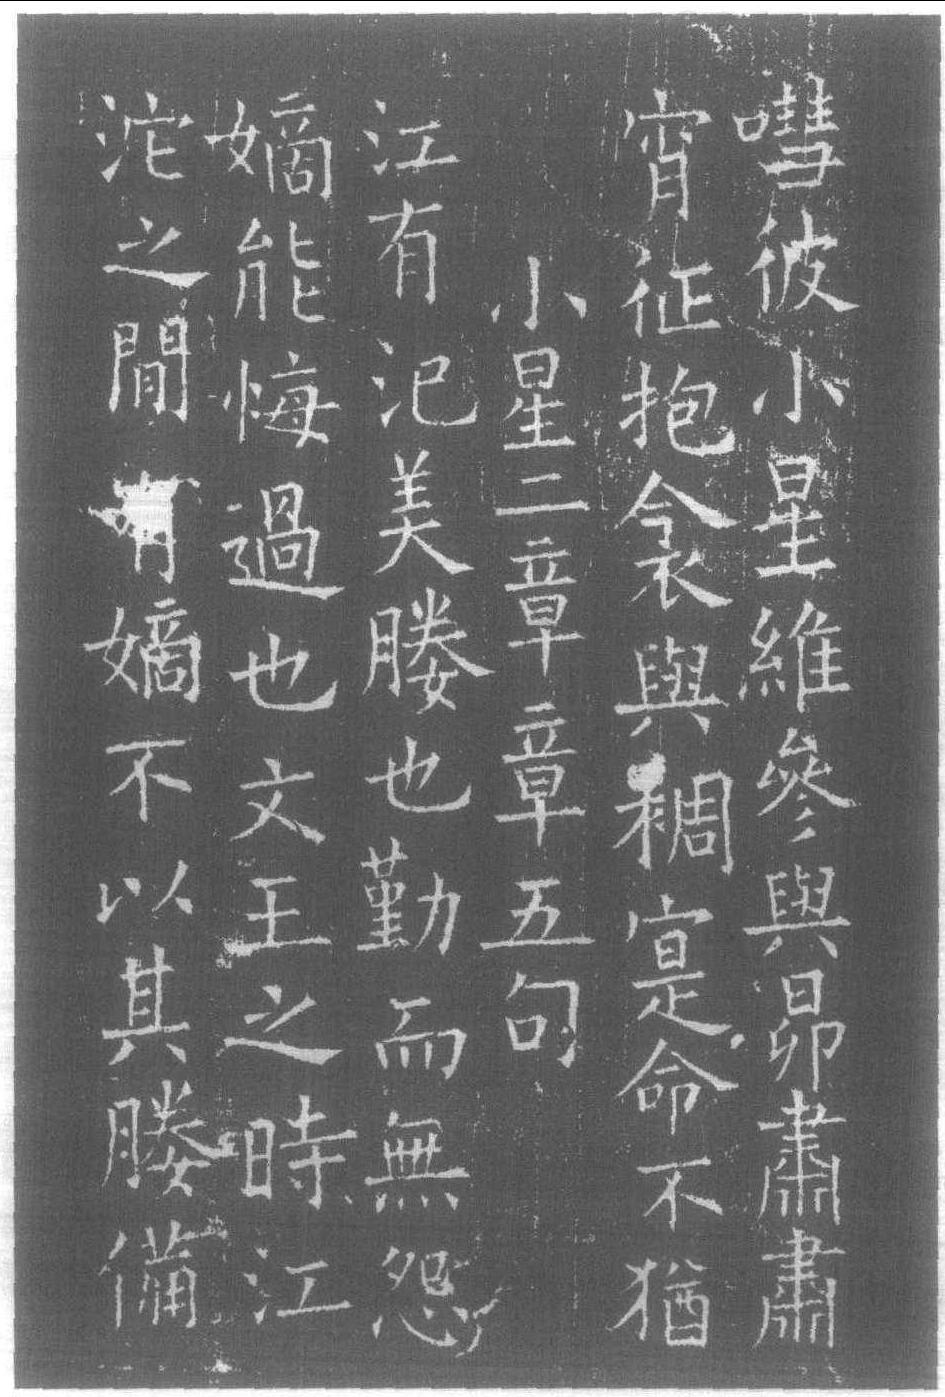 嘒彼小星維參與昴肅肅
宵征抱衾與裯寔命不猶
小星二章章五句
江有汜美媵也勤而無怨
嫡能悔過也文王之時江
沱之間有嫡不以其媵備